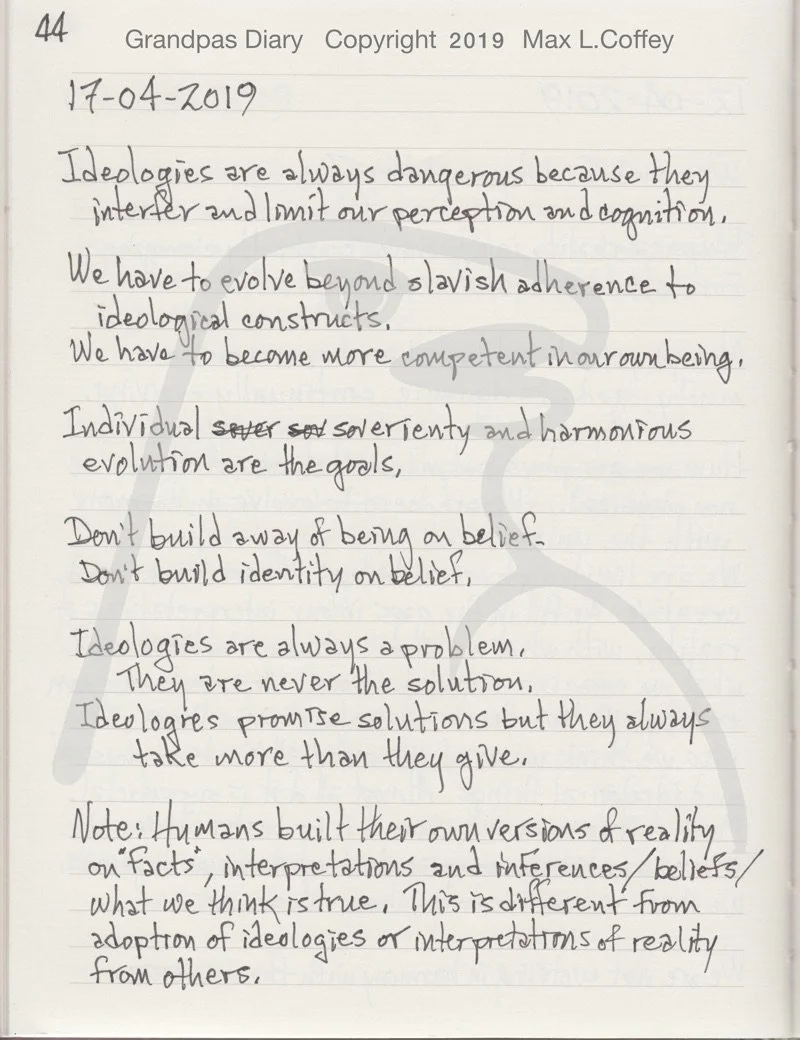 44
Grandpas Diary Copyright 2019 Max L.Coffey
17-04-2019
Ideologies are always dangerous because they
interfer and limit our perception and cognition.
We have to evolve beyond slavish adherence to
ideological constructs.
We have to become more competent in our own being.
Individual sover sov soverienty and harmonious
evolution are the goals,
Don't build away of being on belief.
Don't build identity on belief,
Ideologies are always a problem.
They are never the solution.
Ideologies promise solutions but they always
take more than they give.
Note: Humans built their own versions of reality
on "facts", interpretations and inferences/beliefs/
what we think is true. This is different from
adoption of ideologies or interpretations of reality
from others.